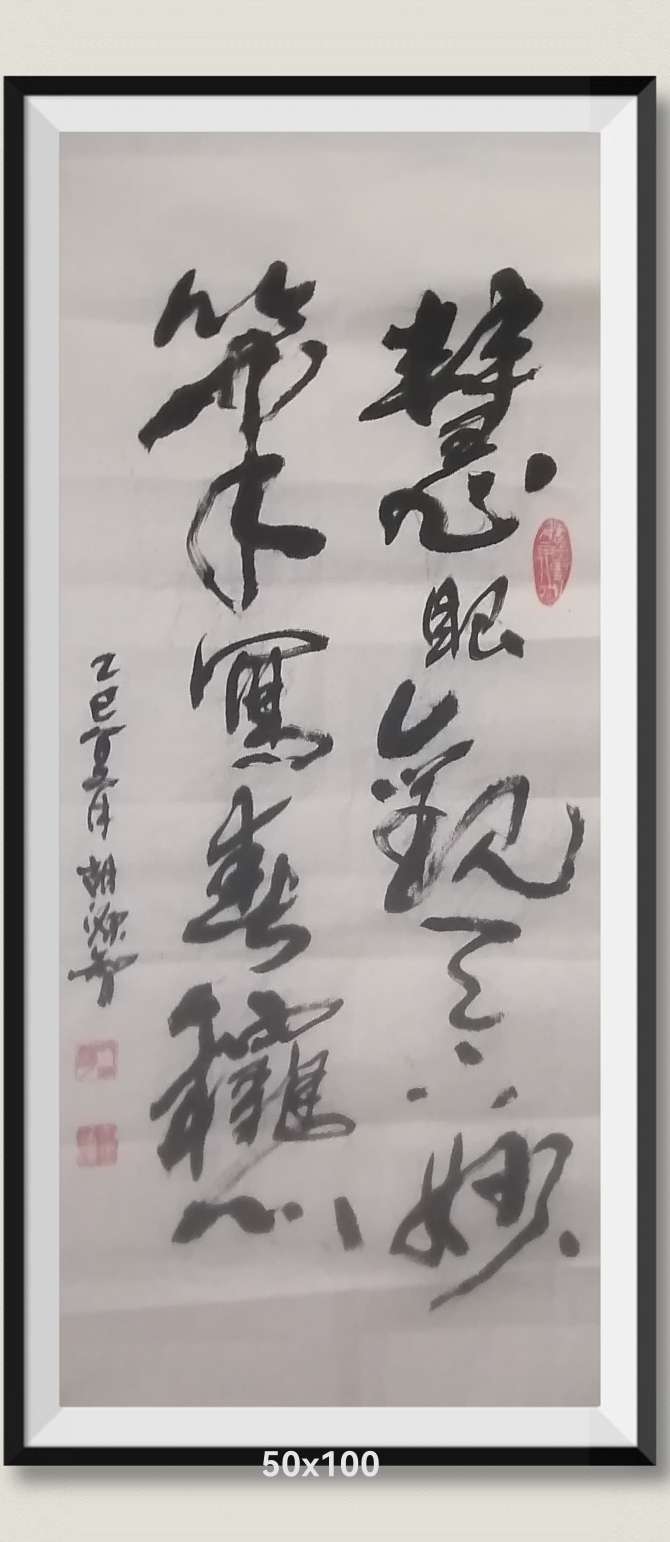 慧眼觀天下妙
筆寫春龝
乙巳夏月胡
50x100